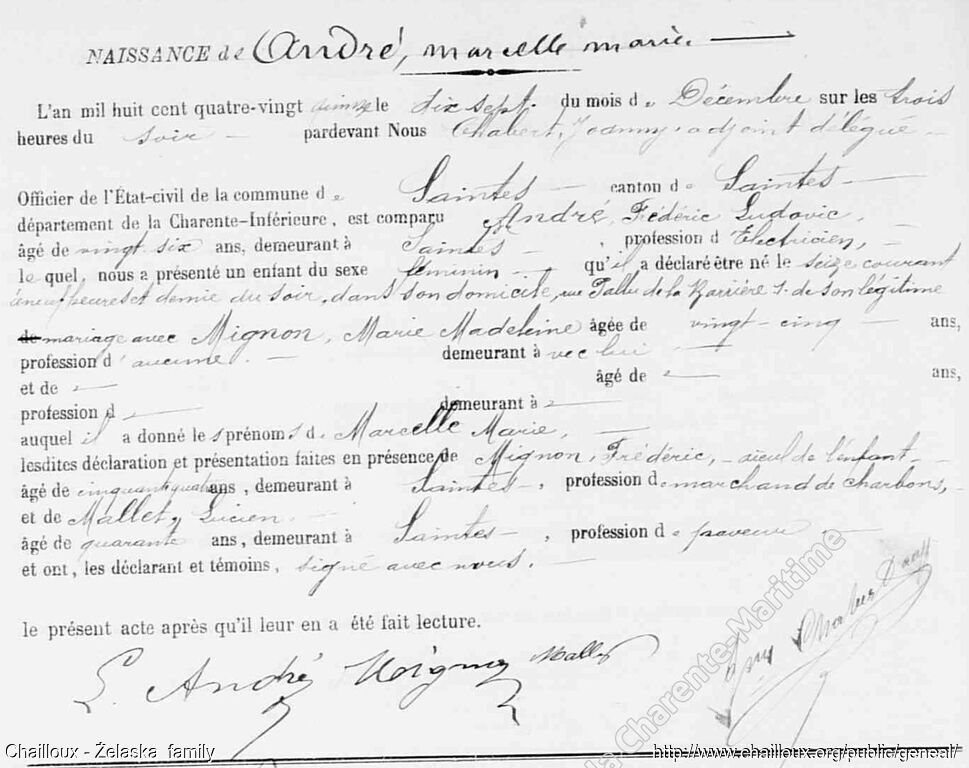 NAISSANCE de André, marcelle marie.
L'an mil huit cent quatre-vingt quinze le dix sept. du mois de Décembre sur les trois
heures du soir pardevant Nous Chabert, Joanny, adjoint délégué
Officier de l'État-civil de la commune de Saintes canton de Saintes
département de la Charente-Inférieure, est comparu André, Frédéric Ludovic,
âgé de vingt six ans, demeurant à Saintes, profession d'Electricien,
lequel, nous a présenté un enfant du sexe féminin qu'il a déclaré être né le seize courant
à neuf heures et demie du soir, dans son domicile, rue Pallu de la Barrière 1. de son légitime
de mariage avec Mignon, Marie Madeleine âgée de vingt-cinq ans,
profession d'aucune. demeurant avec lui
et de âgé de ans,
profession d demeurant à
auquel il a donné les prénoms de Marcelle Marie,
lesdites déclaration et présentation faites en présence de Mignon, Frédéric, aïeul de l'enfant
âgé de cinquante quatre ans, demeurant à Saintes, profession de marchand de charbons,
et de Mallet, Lucien.
âgé de quarante ans, demeurant à Saintes, profession de paveur
et ont, les déclarant et témoins, signé avec nous.
le présent acte après qu'il leur en a été fait lecture.
L. André Mignon Mallet
la Charente-Maritime
Chailloux - Želaska family http://www.chailloux.org/public/geneal/